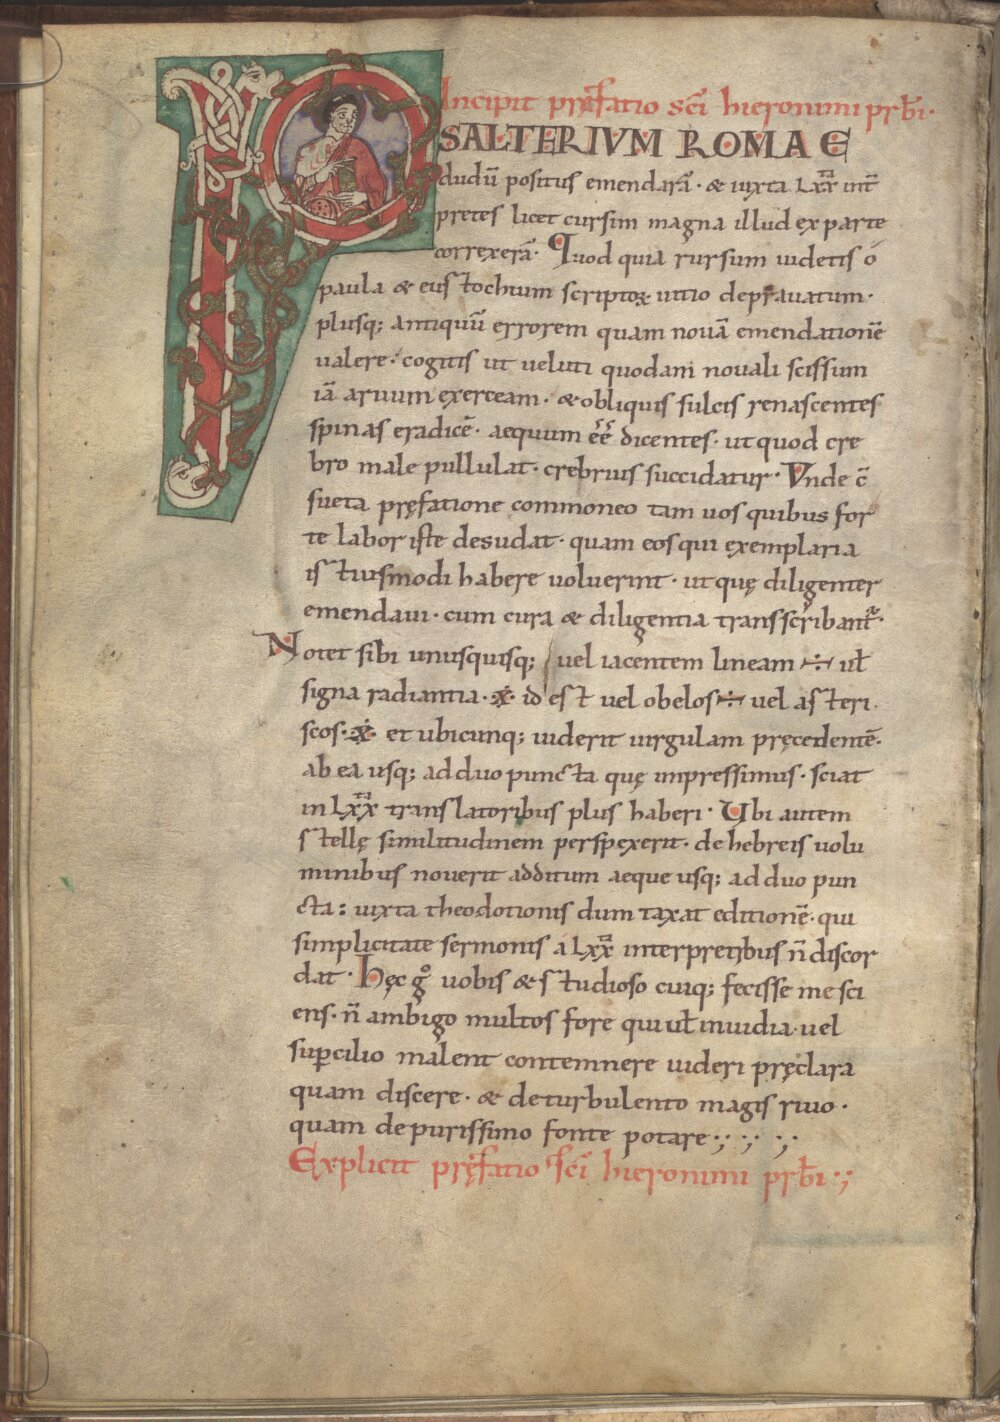 Incipit pręfatio scī hieronimi prbī.
PSALTERIVM ROMAE
dudū positus emendarā · & iuxta LXX int̄
pretes licet cursim magna illud ex parte
correxerā · Quod quia rursum uidetis o
paula & eustochium scriptoꝝ uitio deprauatum ·
plusq; antiquū errorem quam nouā emendationē
ualere · cogitis ut veluti quodam nouali scissum
iā aruum exerceam · & obliquis sulcis renascentes
spinas eradicē · aequum ēē dicentes · ut quod cre
bro male pullulat · crebrius succidatur · Vnde c̄
sueta pręfatione commoneo tam uos quibus for
te labor iste desudat · quam eos qui exemplaria
istiusmodi habere uoluerint · ut quę diligenter
emendaui · cum cura & diligentia transscribant᷑ ·
Notet sibi unusquisq; uel iacentem lineam ÷ ul̄
signa radiantia · ※ id est uel obelos ÷ uel asteri
scos · ※ et ubicunq; uiderit uirgulam pręcedentē ·
ab ea usq; ad duo puncta quę impressimus · sciat
in LXX translatoribus plus haberi · Vbi autem
stellę similitudinem perspexerit · de hebreis uolu
minibus nouerit additum aeque usq; ad duo pun
cta : iuxta theodotionis dum taxat editionē · qui
simplicitate sermonis a LXX interpretibus n̄ discor
dat · Hęc gͦ uobis & studioso cuiq; fecisse me sci
ens · n̄ ambigo multos fore qui ul̄ inuidia uel
sup̄cilio malent contemnere uideri pręclara
quam discere · & de turbulento magis riuo ·
quam de purissimo fonte potare ·; ·; ·;
Explicit pręfatio scī hieronimi prbī ·;